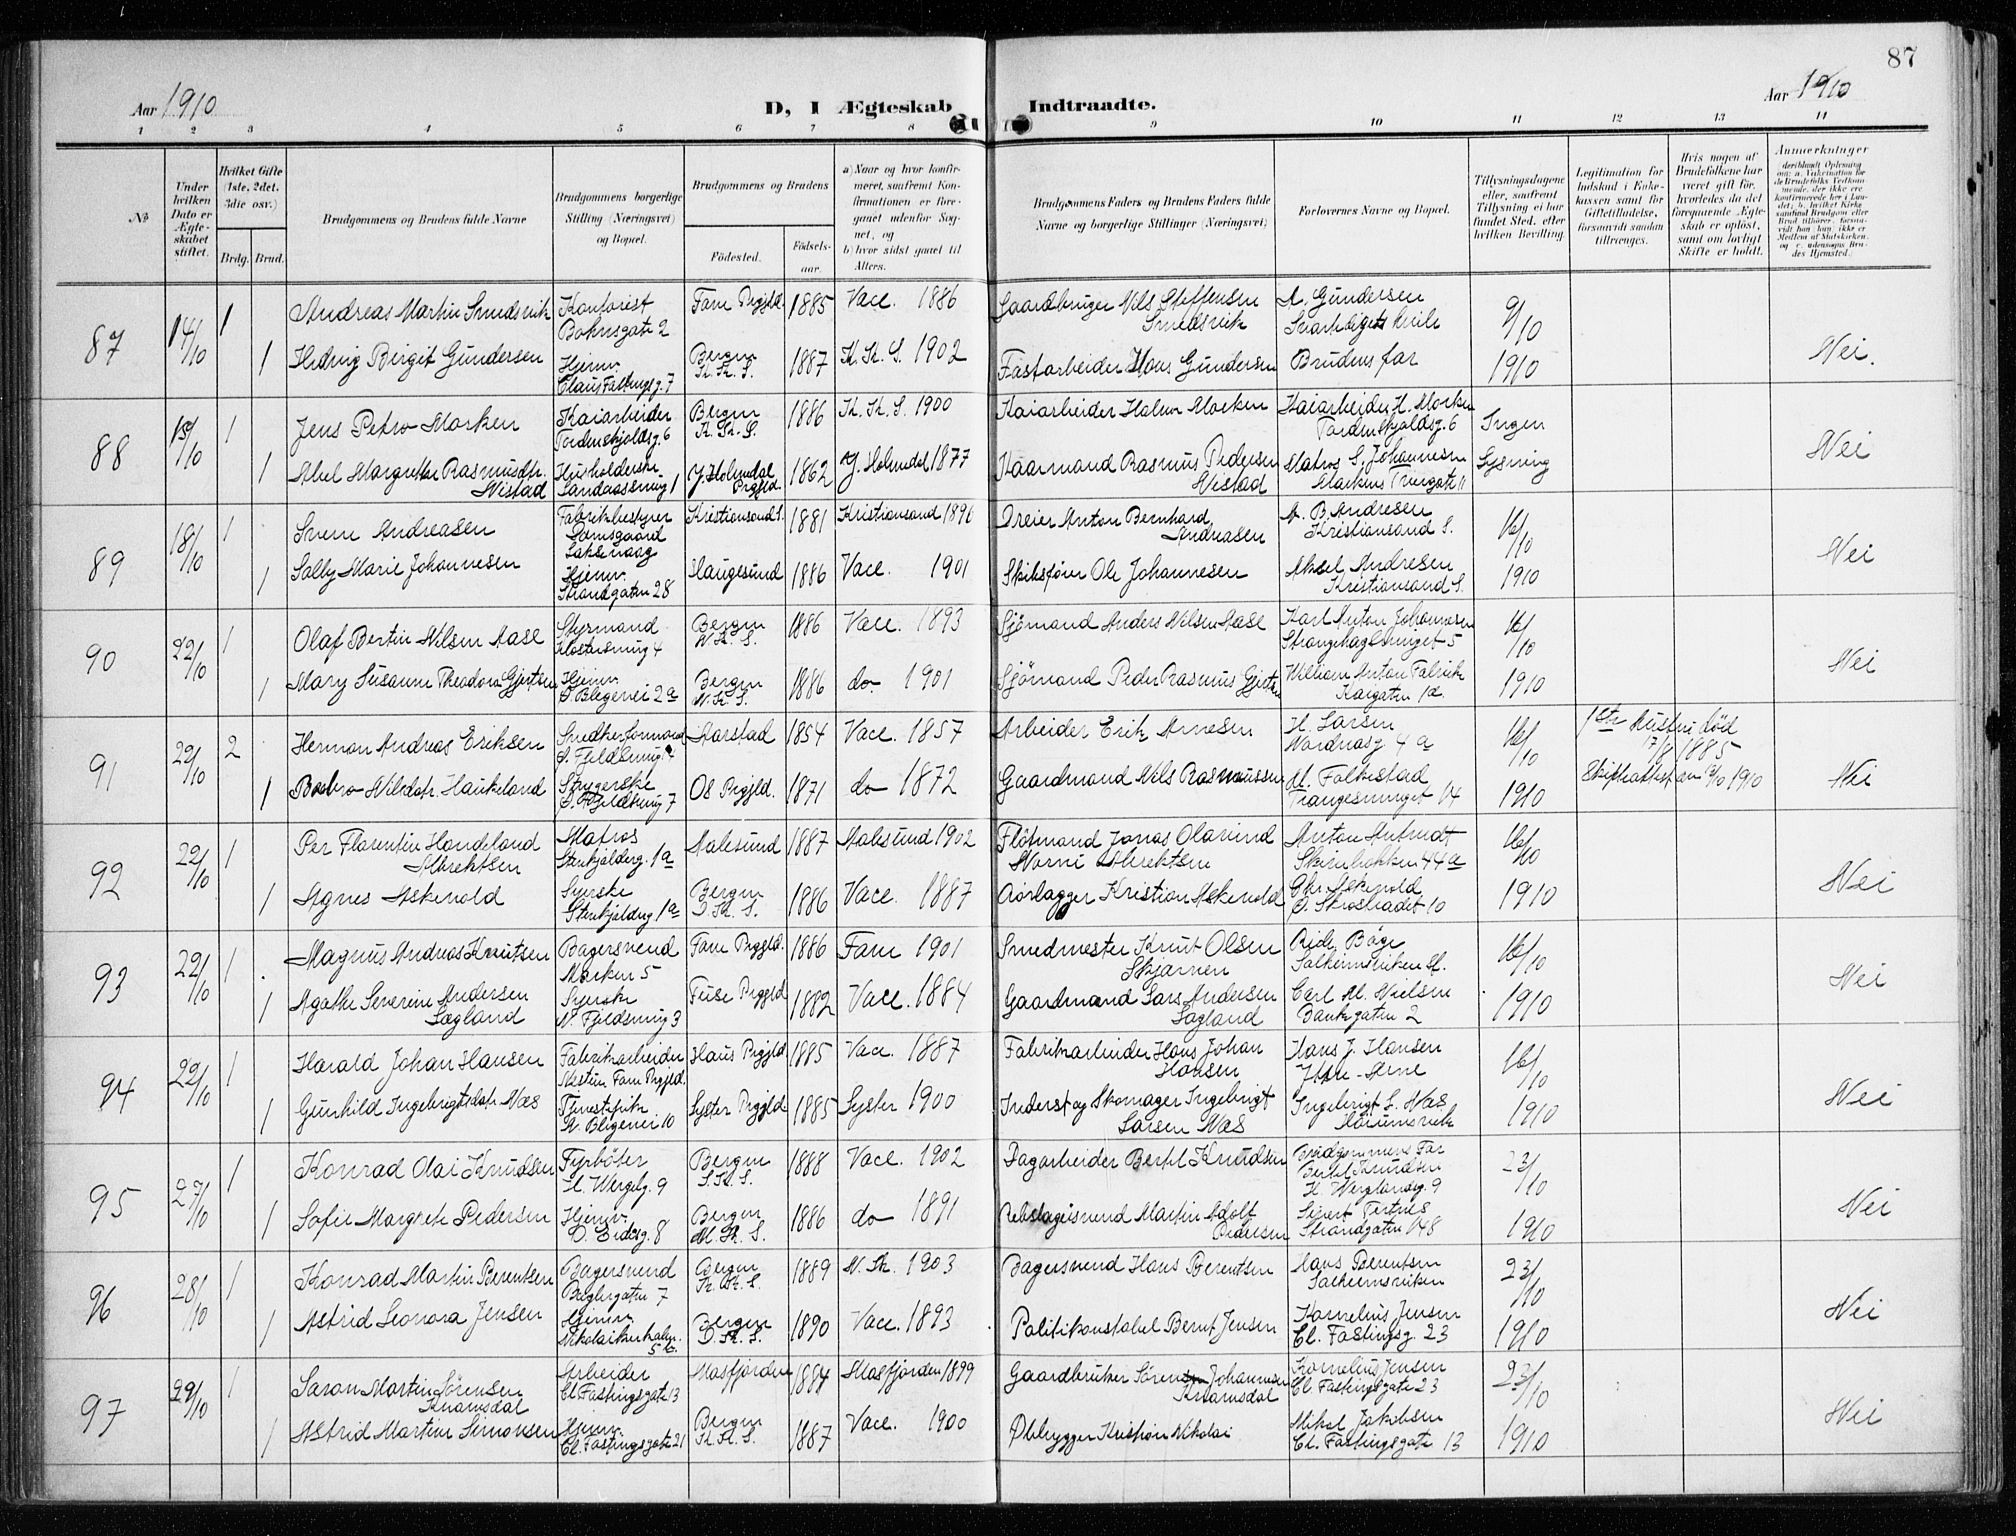 87
Aar 1910
D, I Ægteskab Indtraadte.
Aar 1910
1 2 3 4 5 6 7 8 9 10 11 12 13 14
№
Under hvilken Dato er Ægteskabet stiftet.
Hvilket Gifte (1ste, 2det, 3die osv.)
Brdg. Brud.
Brudgommens og Brudens fulde Navne
Brudgommens borgerlige Stilling (Næringsvei) og Bopæl.
Brudgommens og Brudens
Födested.
Födselsaar.
a) Naar og hvor konfirmeret, saafremt Konfirmationen er foregaaet udenfor Sognet, og
b) hvor sidst gaaet til Alters.
Brudgommens Faders og Brudens Faders fulde Navne og borgerlige Stillinger (Næringsvei)
Forlovernes Navne og Bopæl.
Tillysningsdagene eller, saafremt Tillysning ei har fundet Sted, efter hvilken Bevilling.
Legitimation for Indskud i Enkekassen samt for Giftetilladelse, forsaavidt saadan tiltrænges.
Hvis nogen af Brudefolkene har været gift för, hvorledes da det foregaaende Ægteskab er oplöst, samt om lovligt Skifte er holdt.
Anmerkninger
87 14/10 1 Andreas Martin Smedsvik Kontorist Bohrsgate 2 Fane Prgjld 1885 Vacc. 1886 Gaardbruger Nils Steffensen Smedsvik A. Gundersen 9/10
1 Hedvig Birgit Gundersen Hjemv. Claus Fastingsg. 7 Bergen K. K. S. 1887 K. K. S. 1902 Fastarbeider Hans Gundersen Brudens far 1910 Nei.
88 15/10 1 Jens Petro Morken Kaiarbeider Tordenskjoldsg. 6 Bergen K. K. S. 1886 K. K. S. 1900 Kaiarbeider Halvor Morken Kaiarbeider H. Morken Tordenskjoldsg. 6 Ingen
1 Abel Margrethe Rasmusdtr. Nistad Husholderske Landaasveien 1 Y. Holmedal Prgjld. 1862 Y. Holmedal 1877 Gaardmand Rasmus Pedersen Nistad Matros S. Johannesen Lysning Nei
89 18/10 1 Svenn Andreasen Fabrikbestyrer Damsgaard Laksevaag Kristiansand S. 1881 Kristiansand 1896 Dreier Anton Bernhard Andreasen A. B. Andresen Kristiansand S. 16/10
1 Sally Marie Johannesen Hjemv. Strandgaten 28 Haugesund 1886 Vacc. 1901 Skibsförer Ole Johannesen Aksel Andresen Kristiansand S. 1910 Nei
90 22/10 1 Olaf Bertin Nilsen Aase Styrmand Bergen N. K. S. 1886 Vacc. 1893 Sjömand Anders Nilsen Aase Karl Anton Johannesen Strangehagesmuget 5 16/10
1 Mary Susanne Theodora Gjertsen Hjemv. Ö. Blegevei 2a Bergen N. K. S. 1886 do 1901 Sjömand Peder Rasmus Gjertsen William Anton Kaigaten 1a 1910 Nei
91 22/10 2 Herman Andreas Eriksen Aarstad 1854 Vacc. 1857 Arbeider Erik Arnesen H. Larsen Nordnesg. 4a 16/10 1ste Hustru död 17/8 1885
1 Barbro Nilsdtr. Haukeland Strygerske Ö. Fjeldsmug 7 Os Prgjld. 1871 do 1872 Gaardmand Nils Rasmussen M. Falkestad Trangesmuget 14 1910 Skifteattest av 1910 Nei
92 22/10 1 Per Florentin Handeland Albrektsen Matros Stenkjelderg. 1a Aalesund 1887 Aalesund 1902 Flötmand Jonas Olavind Albrektsen Anton Skivebakken 44a 16/10
1 Agnes Askevold Syerske Stenkjelderg 1a Bergen D. K. S. 1886 Vacc. 1887 Rörlægger Kristian Askevold Chr. Askevold Ö. Skrostradet 10 1910 Nei
93 22/10 1 Magnus Andreas Knutsen Bagersvend Marken 5 Fane Prgjld. 1886 Fane 1901 Smedmester Knut Olsen Skjernen Böge Solheimsviken 16/10
1 Agathe Severine Andersen Sægland Syerske N. Fjeldsmug 3 Fuse Prgjld 1882 Vacc. 1884 Gaardmand Lars Andersen Sægland Carl M. Nielsen Bankgaten 2 1910 Nei
94 22/10 1 Harald Johan Hansen Fabrikarbeider Nesttun Fane Prgjld. Haus Prgjld 1885 Vacc. 1887 Fabrikarbeider Hans Johan Hansen Hans J. Hansen Ytre-Arne 16/10
1 Gunhild Ingebrigtsdatr Næs Tjenestepike N. Blegevei 10 Lyster Prgjld 1885 Lyster 1900 Inderst og Skomager Ingebrigt Larsen Næs Ingebrigt L. Næs 1910 Nei
95 27/10 1 Konrad Olai Knudsen Fyrböter H. Wergelg. 9 Bergen S. K. S. 1888 Vacc. 1902 Dagarbeider Bertel Knudsen Brudgommens Far Bertel Knudsen H. Werglandsg. 9 23/10
1 Sofie Margrete Pedersen Hjemv. Ö. Eidesg. 8 Bergen M. K. S. 1886 do 1891 Rebslagersvend Martin Adolf Pedersen Sivert Tertnes Strandgaten 148 1910 Nei
96 28/10 1 Konrad Martin Berentsen Bagersvend Baglergaten 7 Bergen K. K. S. 1889 N. K. 1903 Bagersvend Hans Berentsen Hans Berentsen Solheimsviken 23/10
1 Astrid Leonora Jensen Hjemv. Nikolaikirkealm. 5 Bergen D. K. S. 1890 Vacc. 1893 Politikonstabel Bernt Jensen Kornelius Jensen Cl. Fastingsg. 23 1910 Nei
97 29/10 1 Saron Martin Sörensen Kvamsdal Arbeider Cl. Fastingsgate 13 Masfjorden 1884 Masfjorden 1899 Gaardbruker Sören Johannesen Kvamsdal Kornelius Jensen Cl. Fastingsgate 23 23/10
1 Astrid Martine Simonsen Hjemv. Cl. Fastingsgate 21 Bergen K. K. S. 1887 Vacc. 1900 Ölbrygger Kristian Nikolai Mikal Jakobsen Cl. Fastingsgate 13 1910 Nei